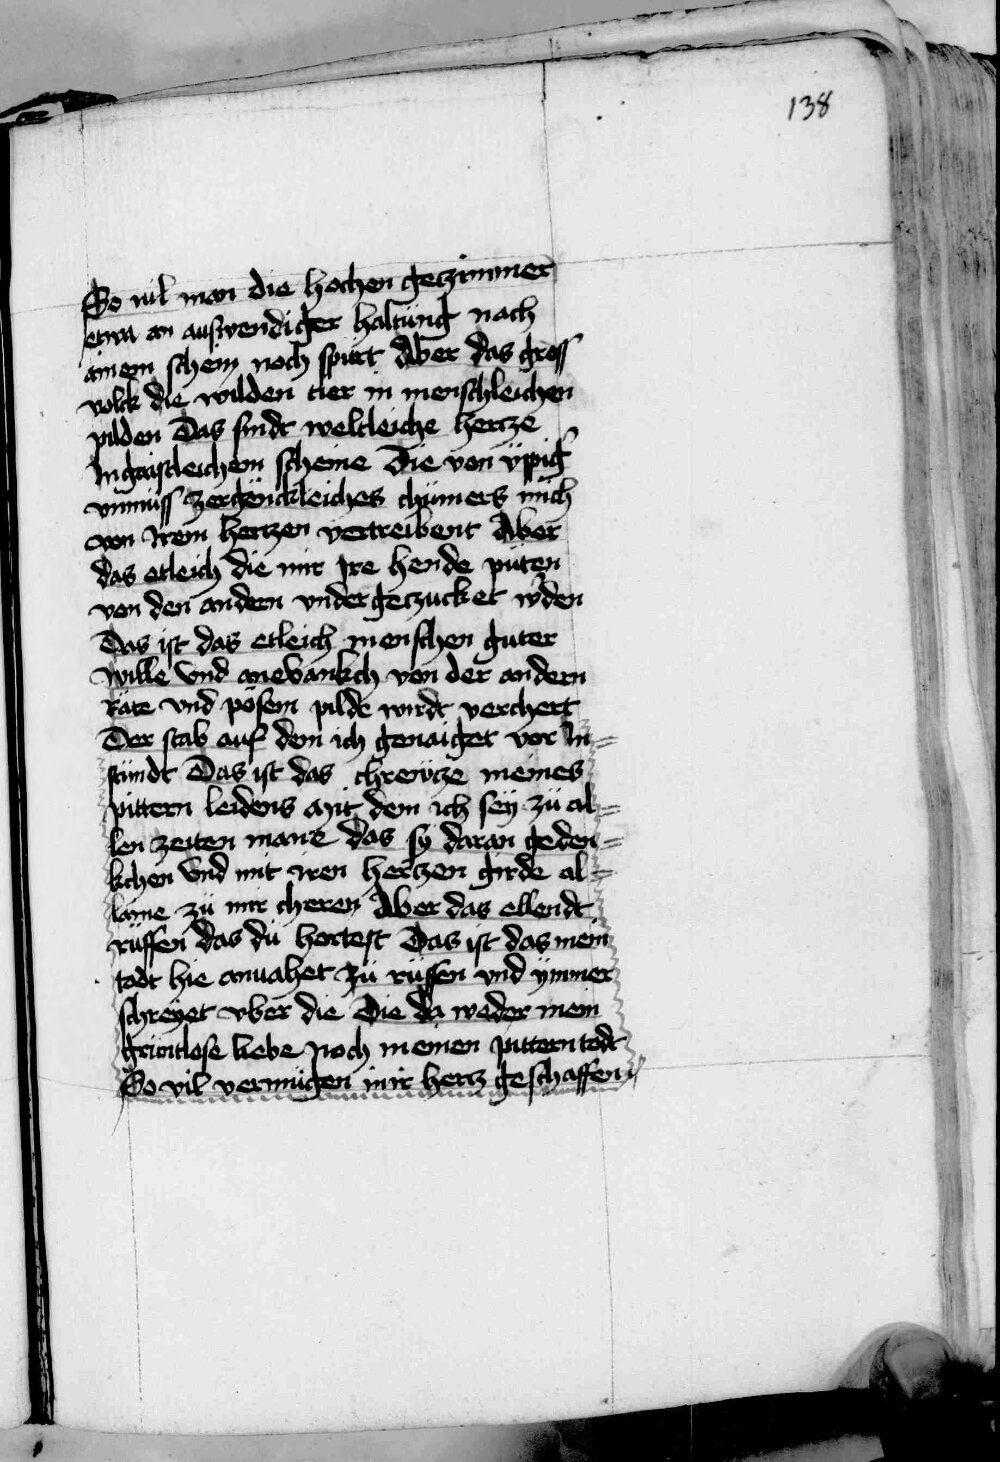 138
So vil man die hochen geczimmer
etwa an auswendiger haltung nach
ainem schein noch spürt Aber das gross
volck die wilden tier in menschleichen
pilden Das sindt weltleiche hercze
In gaistleichem scheine Die von üppig
vnmüss zergënckleiches chümers mich
von Irem herczen vertreibent Aber
das etleich die mir Ire hende püten
von den andern vndergeczucket wden
Das ist das etleich menschen guter
wille Vnd anevankch von der andern
Räte vnd pösem pilde wirdt verchert
Der stab auf dem ich genaiget vor In=
stündt Das ist das chrewcze meines
pittern leidens Mit dem ich sey zü al=
len zeiten mane das sy daran geden=
kchen Vnd mit iren herczen girde al=
laine zü mir cheren Aber das ellendt
rüffen das dü hortest Das ist das mein
todt hie anuahet zü rüffen vnd ymmer
schreyet vber die Die da weder mein
grüntlose liebe Noch meinen pittern todt
So vil vermügen in ir hercz geschaffen